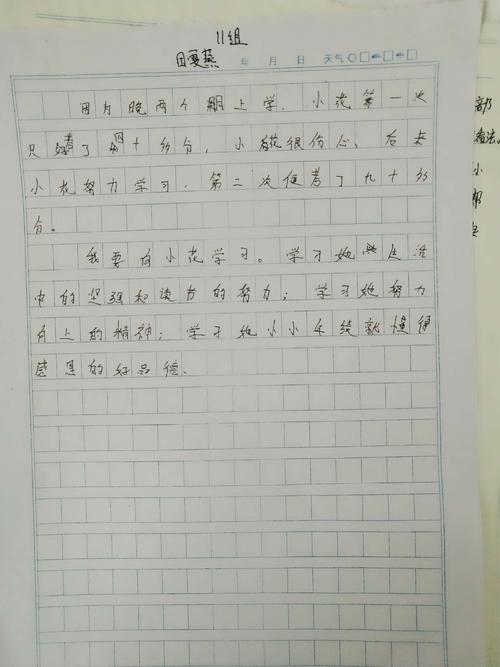 11组
田夏燕 年 月 日 天气
因为晚两个月上学,小花第一次
只考了四十多分,小花很伤心、后来
小花努力学习,第二次便考了九十多
分。
我要向小花学习。学习她 生活
中的坚强和 的努力;学习她努力
向上的精神;学习她小小年纪就懂得
感恩的好品德.
部
看法。
小